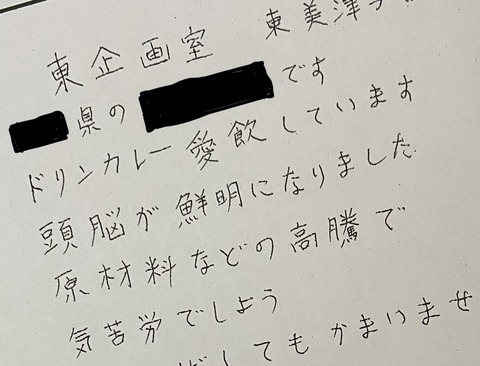 東企画室 東美津子
県の
です
ドリンカレー愛飲しています
頭脳が鮮明になりました
原材料などの高騰で
気苦労でしょう
してもかまいませ